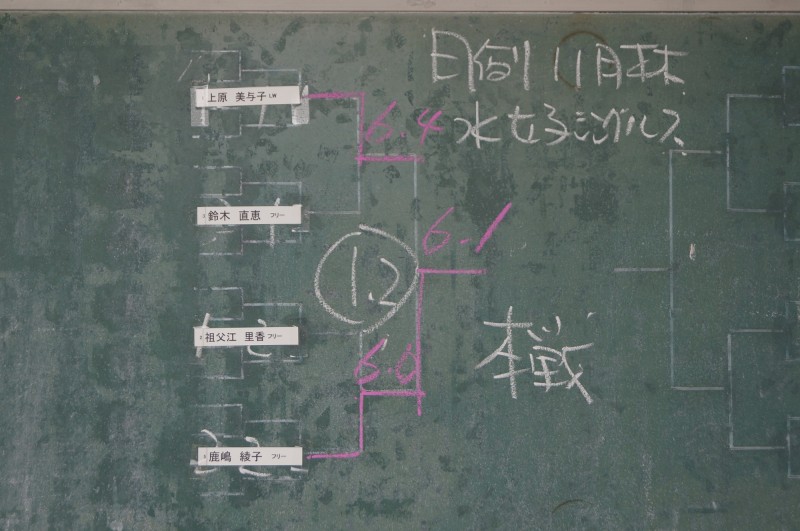 日例 11月 期
水女子シングルス
上原 美与子 LW
6.4
鈴木 直恵 フリー
6.1
1.2
祖父江 里香 フリー
6.0
本戦
鹿嶋 綾子 フリー